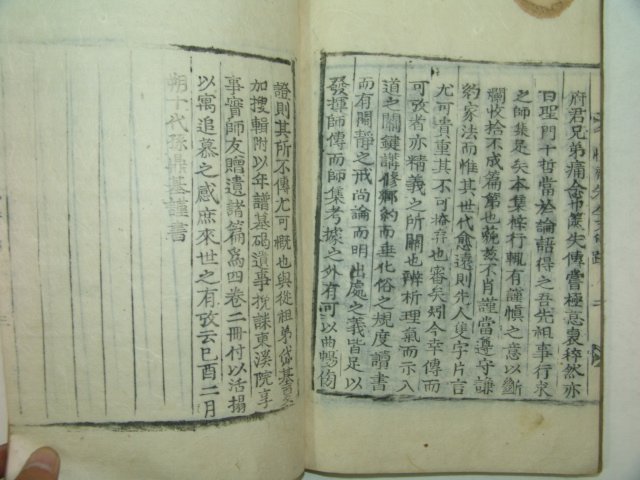 府君兄弟痛金巾叢失傳嘗極忘衷稡然亦
曰聖門十哲當於論語得之吾先祖事行求
之師集足矣本集梓行輒有謹慎之意以斷
爛收拾不成篇第也藐茲不肖謹當遵守謙
約家法而惟其世代愈遠則先人隻字片言
尤可貴重其不可掩棄也審矣矧今幸傳而
可攷者亦精義之所關也辨析理氣而示入
道之關鍵講修鄕約而垂化俗之規度讀書
而有鬧靜之戒尚論而明出處之義皆足以
發揮師傳而師集考據之外有可以曲暢傍
證則其所不傳尤可慨也與從祖弟岱基
加搜輯附以年譜墓碣遺事挽誄東溪院享
事實師友贈遺諸篇爲四卷二冊付以活搨
以寓追慕之感庶來世之有攷云己酉二月
朔十代孫鼎基謹書